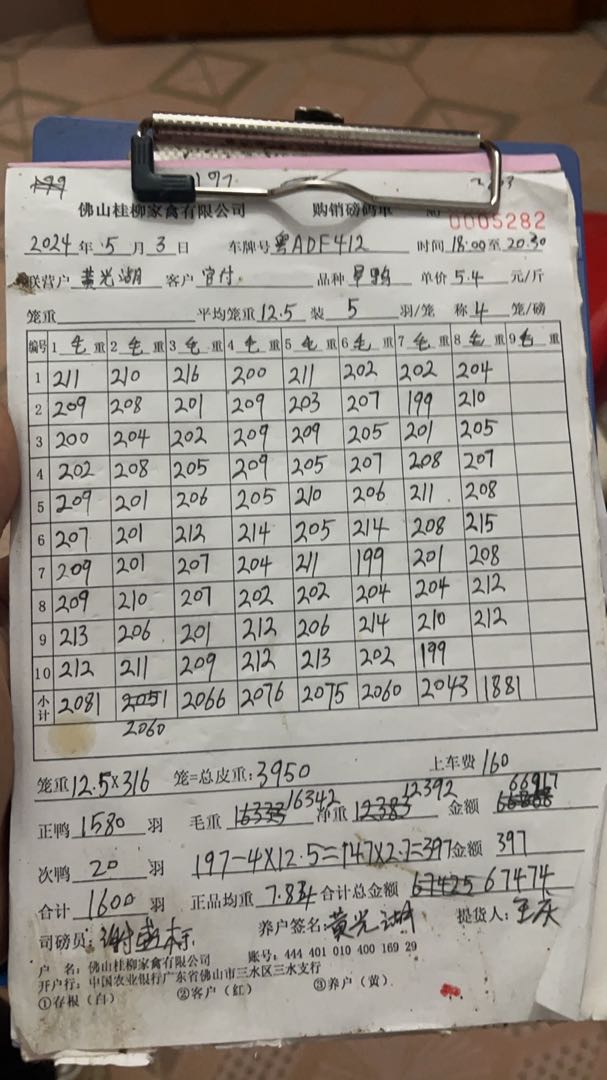 197
佛山桂柳家禽有限公司 购销磅码单 № 0005282
2024 年 5 月 3 日 车牌号 粤ADF412 时间 18:00 至 20:30
联营户 黄光湖 客户 官付 品种 旱鸭 单价 5.4 元/斤
笼重 平均笼重 12.5 装 5 羽/笼 称 4 笼/磅
编号 1 毛 重 2 毛 重 3 毛 重 4 毛 重 5 毛 重 6 毛 重 7 毛 重 8 毛 重 9 毛 重
1 211 210 216 200 211 202 202 204
2 209 208 201 209 203 207 199 210
3 200 204 202 209 209 205 201 205
4 202 208 205 209 205 207 208 207
5 209 201 206 205 210 206 211 208
6 207 201 212 214 205 214 208 215
7 209 201 207 204 211 199 201 208
8 209 210 207 202 202 204 204 212
9 213 206 201 212 206 214 210 212
10 212 211 209 212 213 202 199
小计 2081 2051 2066 2076 2075 2060 2043 1881
2060
笼重 12.5×316 笼=总皮重: 3950 上车费 160
正鸭 1580 羽 毛重 16333 16342 净重 12383 12392 金额 66917
次鸭 20 羽 197-4×12.5=147×2.7=397 金额 397
合计 1600 羽 正品均重 7.834 合计总金额 67425 67474
司磅员: 养户签名: 黄光湖 提货人:
户 名: 佛山桂柳家禽有限公司 账号: 444 401 010 400 169 29
开户行: 中国农业银行广东省佛山市三水区三水支行
①存根（白） ②客户（红） ③养户（黄）